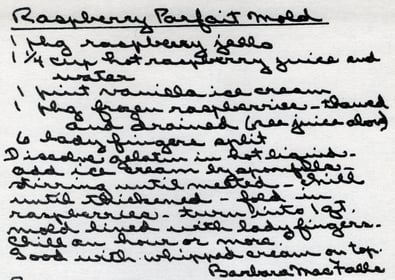 Raspberry Parfait Mold
1 pkg raspberry jello
1 1/4 cup hot raspberry juice and
water
1 pint vanilla ice cream
1 pkg frozen raspberries - thawed
and drained (use juice above)
6 lady fingers split
Dissolve gelatin in hot liquid -
add ice cream by spoonfulls -
stirring until melted - chill
until thickened - fold in
raspberries - turn into 1 qt.
mold lined with lady fingers.
Chill an hour or more.
Good with whipped cream on top.
Barbara MacFalls